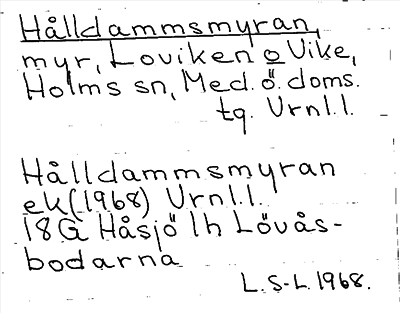 Hålldammsmyran,
myr, Loviken o Vike,
Holms sn, Med. ö. doms.
tg. Urnl.l.
Hålldammsmyran
ek(1968) Urnl.l.
18G Håsjö lh Lövås-
bodarna
L.S-L. 1968.